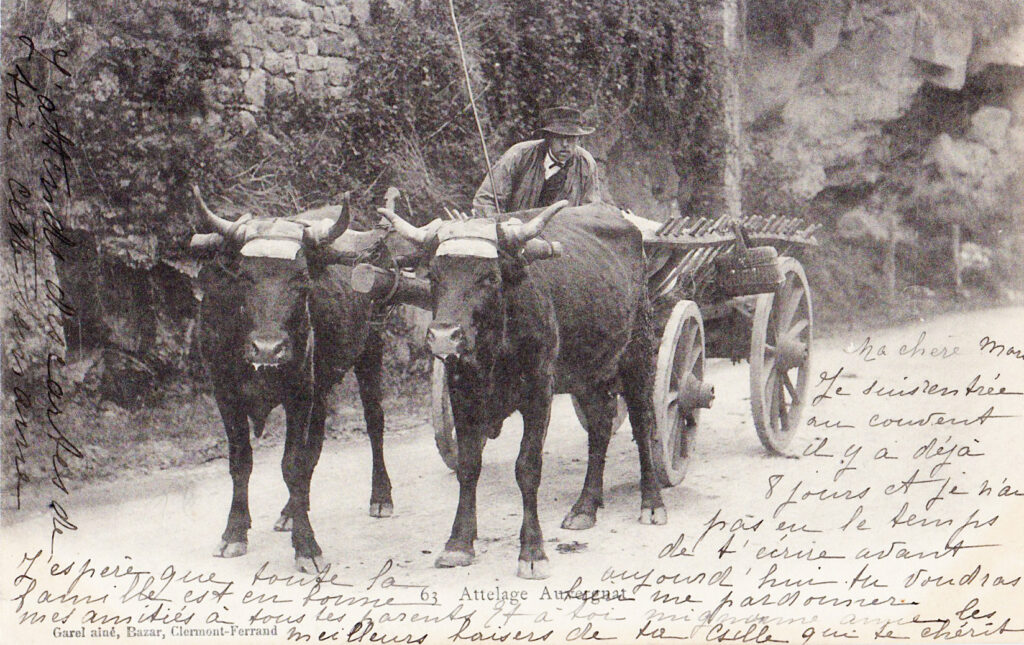 Ma chère
Je suis rentrée
au couvent
il y a déjà
8 jours et je n'ai
pas eu le temps
de t'écrire avant
aujourd'hui tu voudras
me pardonner
J'espère que toute la
famille est en bonne
mes amitiés à tous tes parents Et à toi mignonne amie les
meilleurs baisers de ta qui te chérit
J'attends des cartes de
toi
63 Attelage Auvergnat
Garel aîné, Bazar, Clermont-Ferrand